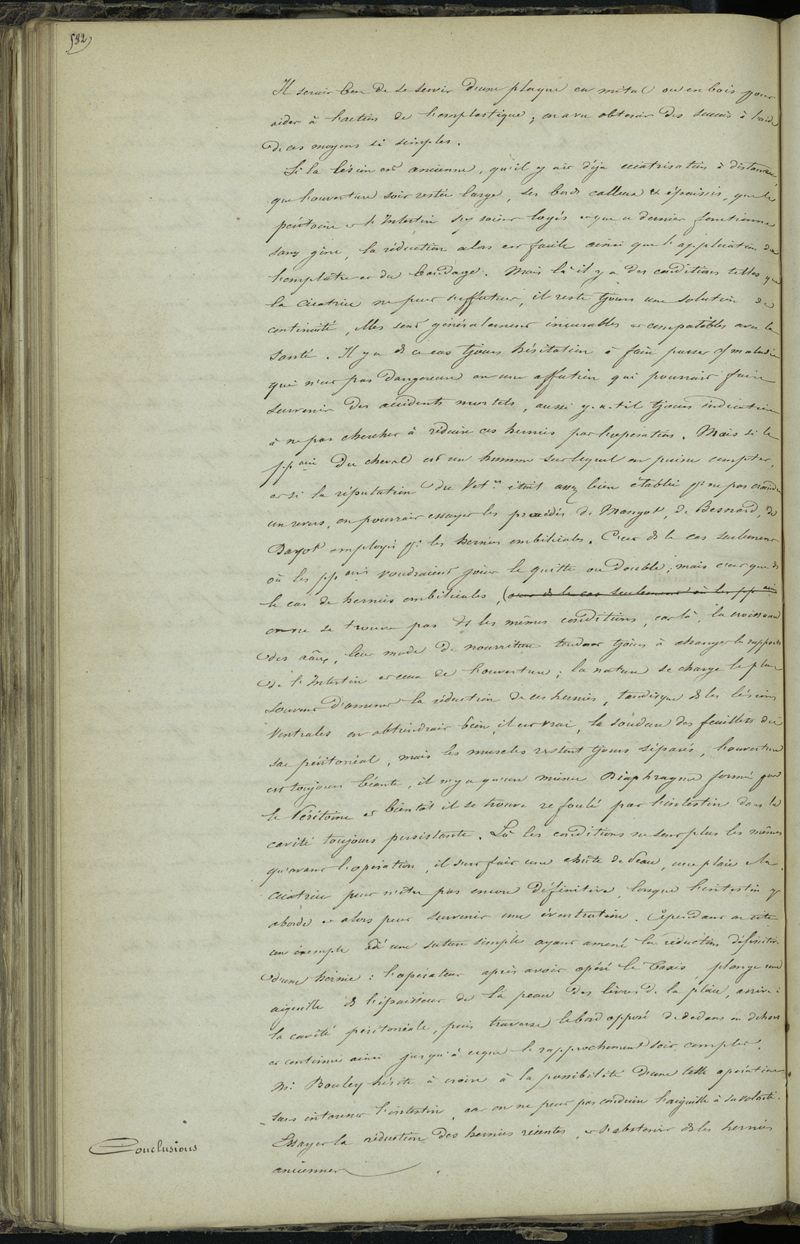 582)
Il serait bon de se servir d'une plaque en métal ou en bois pour
aider à l'action de l'emplastique ; on a vu obtenir des succès à l'aide
de ces moyens si simples.
Si la lésion est ancienne, qu'il y ait déja cicatrisation à distance,
que l'ouverture soit restée large, ses bords calleux & épaissis, que le
péritoine et l'Intestin s'y soient logés et que ce dernier fonctionne
sans gêne, la réduction alors est facile ainsi que l'application de
l'emplâtre et du bandage. Mais là il y a des conditions telles que
la cicatrice ne peut s'effectuer, il reste tjours une solution de
continuité, elles sont généralement incurables et compatibles avec la
santé. Il y a ds ce cas tjours hésitation à faire passer 1 maladie
qui n'est pas dangereuse en une affection qui pourrait faire
survenir des accidents mortels, aussi y a-t-il tjours indication
à ne pas chercher à réduire ces hernies par l'opération. Mais si le
ppaire du cheval est un homme sur lequel on puisse compter,
et si la réputation du Vetre était assez bien établie pr ne pas craindre
un revers, on pourrait essayer les procédés de Mangot, de Besnard, de
Dayot employés pr les hernies ombilicales. C'est ds le cas seulement
où les ppaires voudraient jouer le quitte ou double ; mais c'est que ds
le cas de hernies ombilicales, (c'est ds le cas seulement où les ppaires
on ne se trouve pas ds les mêmes conditions, car là, la croissance
des aînx, leur mode de nourriture tendent tjours à changer le rapport
de l'Intestin et ceux de l'ouverture ; la nature se charge le plus
souvent d'amener la réduction de ces hernies, tandis que ds les lésions
Ventrales on obtiendrait bien, il est vrai, la soudure des feuillets du
sac péritonéal, mais les muscles restent tjours séparés, l'ouverture
est toujours béante, il n'y a qu'un mince Diaphragme formé par
le Péritoine et bientôt il se trouve refoulé par l'intestin dans la
cavité toujours persistante. Là les conditions ne sont plus les mêmes
qu'avant l'opération, il s'est fait une chûte de peau, une plaie et la
cicatrice peut n'être pas encore définitive, lorsque l'intestin y
aborde et alors peut survenir une éventration. Cependant on cite
un exemple où une suture simple ayant amené la réduction définitive
d'une hernie : l'opérateur après avoir opéré le taxis, plonge une
aiguille ds l'épaisseur de la peau des lèvres de la plaie, arrive à
la cavité péritonéale, puis traverse le bord opposé de dedans en dehors
et continue ainsi jusqu'à ce que le rapprochement soit complet.
Mr Bouley hésite à croire à la possibilité d'une telle opération
sans entamer l'intestin, car on ne peut pas conduire l'aiguille à sa volonté.
Conclusions
Essayer la réduction des hernies récentes, et s'abstenir ds les hernies
anciennes.